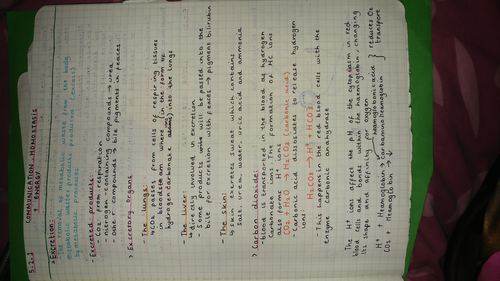 5.2.2
COMMUNICATION, HOMEOSTASIS
+ ENERGY
> Excretion:
The removal of metabolic waste from the body
metabolic waste: products produced (excess)
by metabolic processes
- Excreted products:
- CO2 from respiration
- nitrogen containing compounds → urea
- other compounds → bile pigments in faeces
> Excretory Organs
- The lungs
↳ CO2 passes from cells of respiring tissues
in bloodstream where (in the form of
hydrogen carbonate into the lungs
- The liver
↳ directly involved in excretion.
- Some products will be passed into the
bile for excretion with faeces → pigment bilirubin
- The skin
↳ skin excretes sweat which contains
salt, urea, water, uric acid and ammonia
> Carbon dioxide
- blood is transported in the blood as hydrogen
carbonate ions. The formation of HC ions
also H+ ions
CO2 + H2O → H2CO3 (carbonic acid)
- Carbonic acid dissociates to release hydrogen
ions:
H2CO3 → H+ + HCO3-
- This happens in the red blood cells with the
enzyme carbonic anhydrase
The H+ ions affect the pH of the cytoplasm in red
blood cells and bonds within the haemoglobin, changing
its shape and affinity for oxygen
H+ + Haemoglobin → haemoglobonicacid } reduces O2
CO2 + Haemoglobin → carbaminohaemoglobin } transport